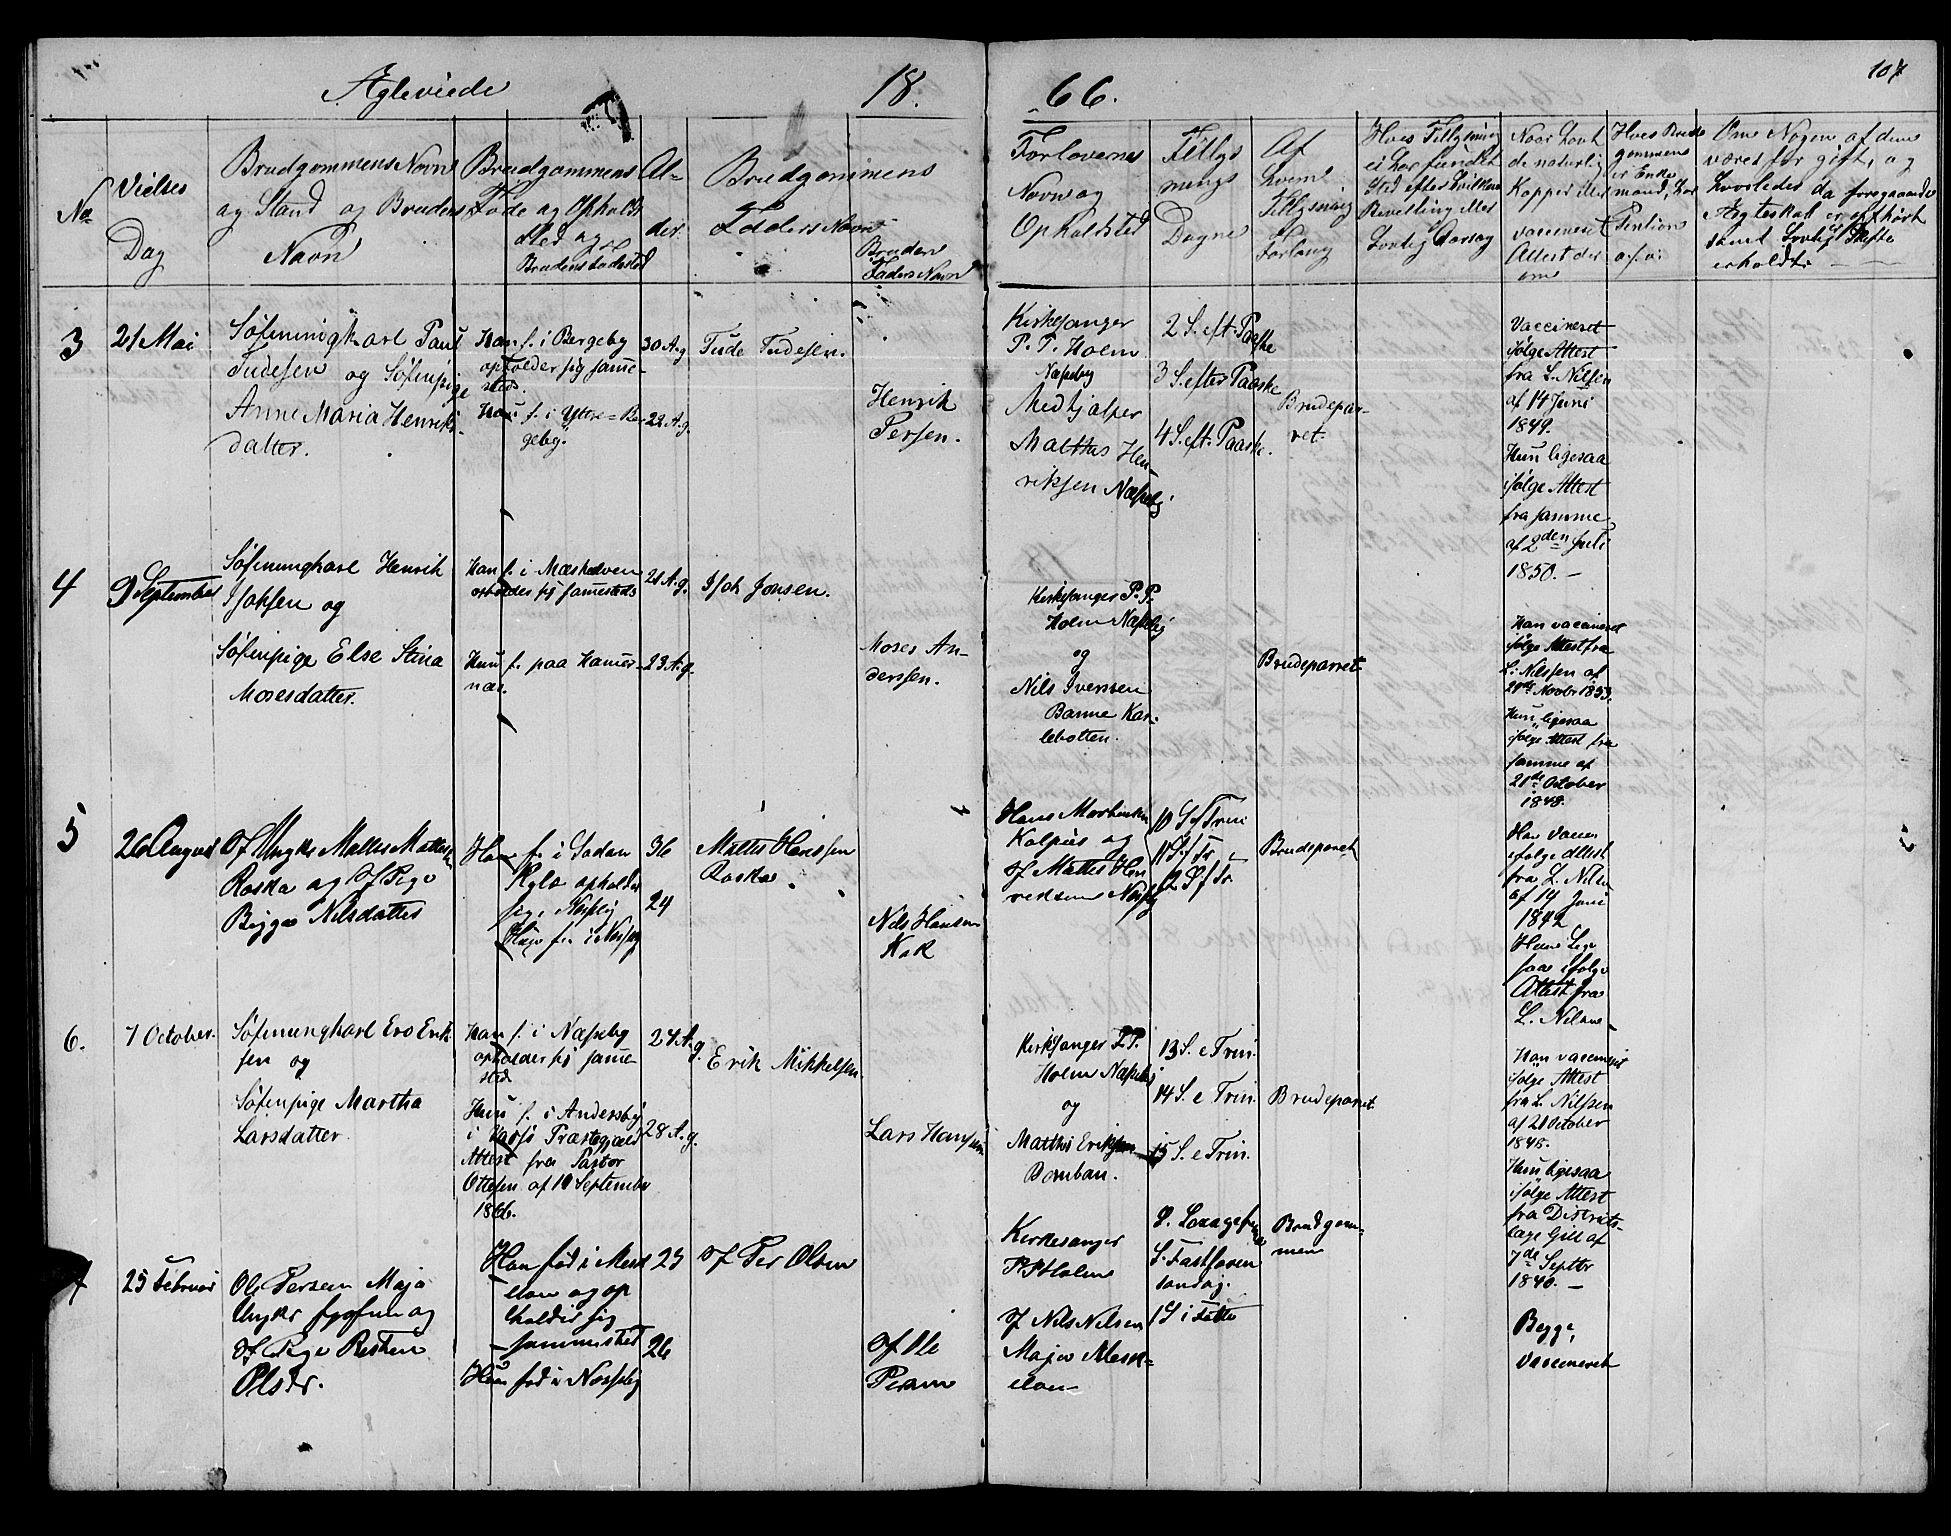 Ægteviede
18
66.
107
No
Vielses
Dag
Brudgommens Navn
og Stand og Brudens
Navn
Brudgommens
Føde og Opholds
Sted og
Brudens Fødested
Al-
der.
Brudgommens
Faders Navn
Brudens
Faders Navn
Forlovernes
Navn og
Opholdsted
Tillys
nings
Dagene
Af
hvem
Tillysning
er
Forlangt
Hvis Tillysning
ei har fundet
Sted efter hvilken
Bevilling eller
Lovlig Aarsag
Naar havt
de naturlig
Kopper eller
vaccineret
Attest der
om
Hvis Brud
gommen
er Enke
mand, har
Om Nogen af dem
været før gift, og
hvorledes da foregaaende
Ægteskab er ophørt
samt Lovligt Skifte
erholdt
3
21 Mai
Søfinungkarl Paul
Tudesen og Søfinpige
Anne Maria Henriks-
datter.
Han f. i Bergeby
opholder sig samme-
steds.
Hun f. i Yttre=Ber
geby.
30 A. g.
22 A. g.
Tude Tudesen.
Henrik
Persen.
Kirkesanger
P. P. Holm
Næsseby
Medhjælper
Matthas Hen
riksen Næsseby
2 S. eft. Paaske
3 S. efter Paaske
4 S. eft. Paaske.
Brudepar-
ret.
Vaccineret
ifølge Attest
fra L. Nilsen
af 14 Juni
1849.
Hun ligesaa
ifølge Attest
fra samme
af 2den Juli
1850. —
4
9 September
Søfinungkarl Henrik
Isaksen og
Søfinpige Else Stina
Mosesdatter.
Han f. i Mæskelven
opholder sig sammesteds
Hun f. paa Hamer-
næs.
21 A. g.
23 A. g.
Isak Jonsen.
Moses An-
derssen.
Kirkesanger P. P.
Holm Næsseby
og
Nils Iversen
Banne Kar-
lebotten.
Brudeparret.
Han vaccineret
ifølge Attest fra
L. Nilssen af
Novbr 1853.
Hun ligesaa
ifølge Attest fra
samme af
21de October
1848.
5
26 August
Of Ungk Mattes Mattesen
Raska og Of Pige
Bigga Nilsdatter
Han f. i
opholder
sig i Næsseby
Hun f. i Næsseby
36
24
Mattes Hanssen
Raska.
Nils Hansen
Kak
Hans Mortensen
Kalpus og
Of Mattes Hen
riksen Næsseby
10 S ef Trin
11 S. f Tr
12 S f Tr
Brudeparet
Han Vaccin
ifølge Attest
fra L. Nilsen
af 19 Juni
1842
Hun lige
saa ifølge
Attest fra
L. Nilsen
6.
7 October.
Søfinungkarl Ero Erik
sen og
Søfinpige Martha
Larsdatter
Han f. i Næsseby
opholder sig samme
sted.
Hun f. i Andersby
i Vadsø Præstegjæld
Attest fra Pastor
Ottesen af 10 September
1866.
24 A. g.
28 A. g.
Erik Mikkelsen.
Lars Hanssen
Kirkesanger P. P.
Holm Næsseby
og
Matthis Eriksen
Bomban.
13 S. e Trin.
14 S. e Trin.
15 S. e Trin.
Brudeparret.
Han vaccineret
ifølge Attest
fra L. Nilssen
af 21 October
1848.
Hun ligesaa
ifølge Attest
fra Districts-
læge Gill af
7de Septbr
1840. —
7
25 Februar
Ole Persen Maja
Ungkr og
Of Pige Risten
Olsdr.
Han født i Mesk
elven og op
holder sig
sammested
Hun født i Næsseby
25
26
Of Per Olsen
Of Ole
Persen
Kirkesanger
P. P. Holm
Of Nils Nilsen
Maja Mesk-
elven
S. Sexagesima
S. Fastelaven
søndag.
1 S i Faste
Brudgom-
men
Begge
vaccineret